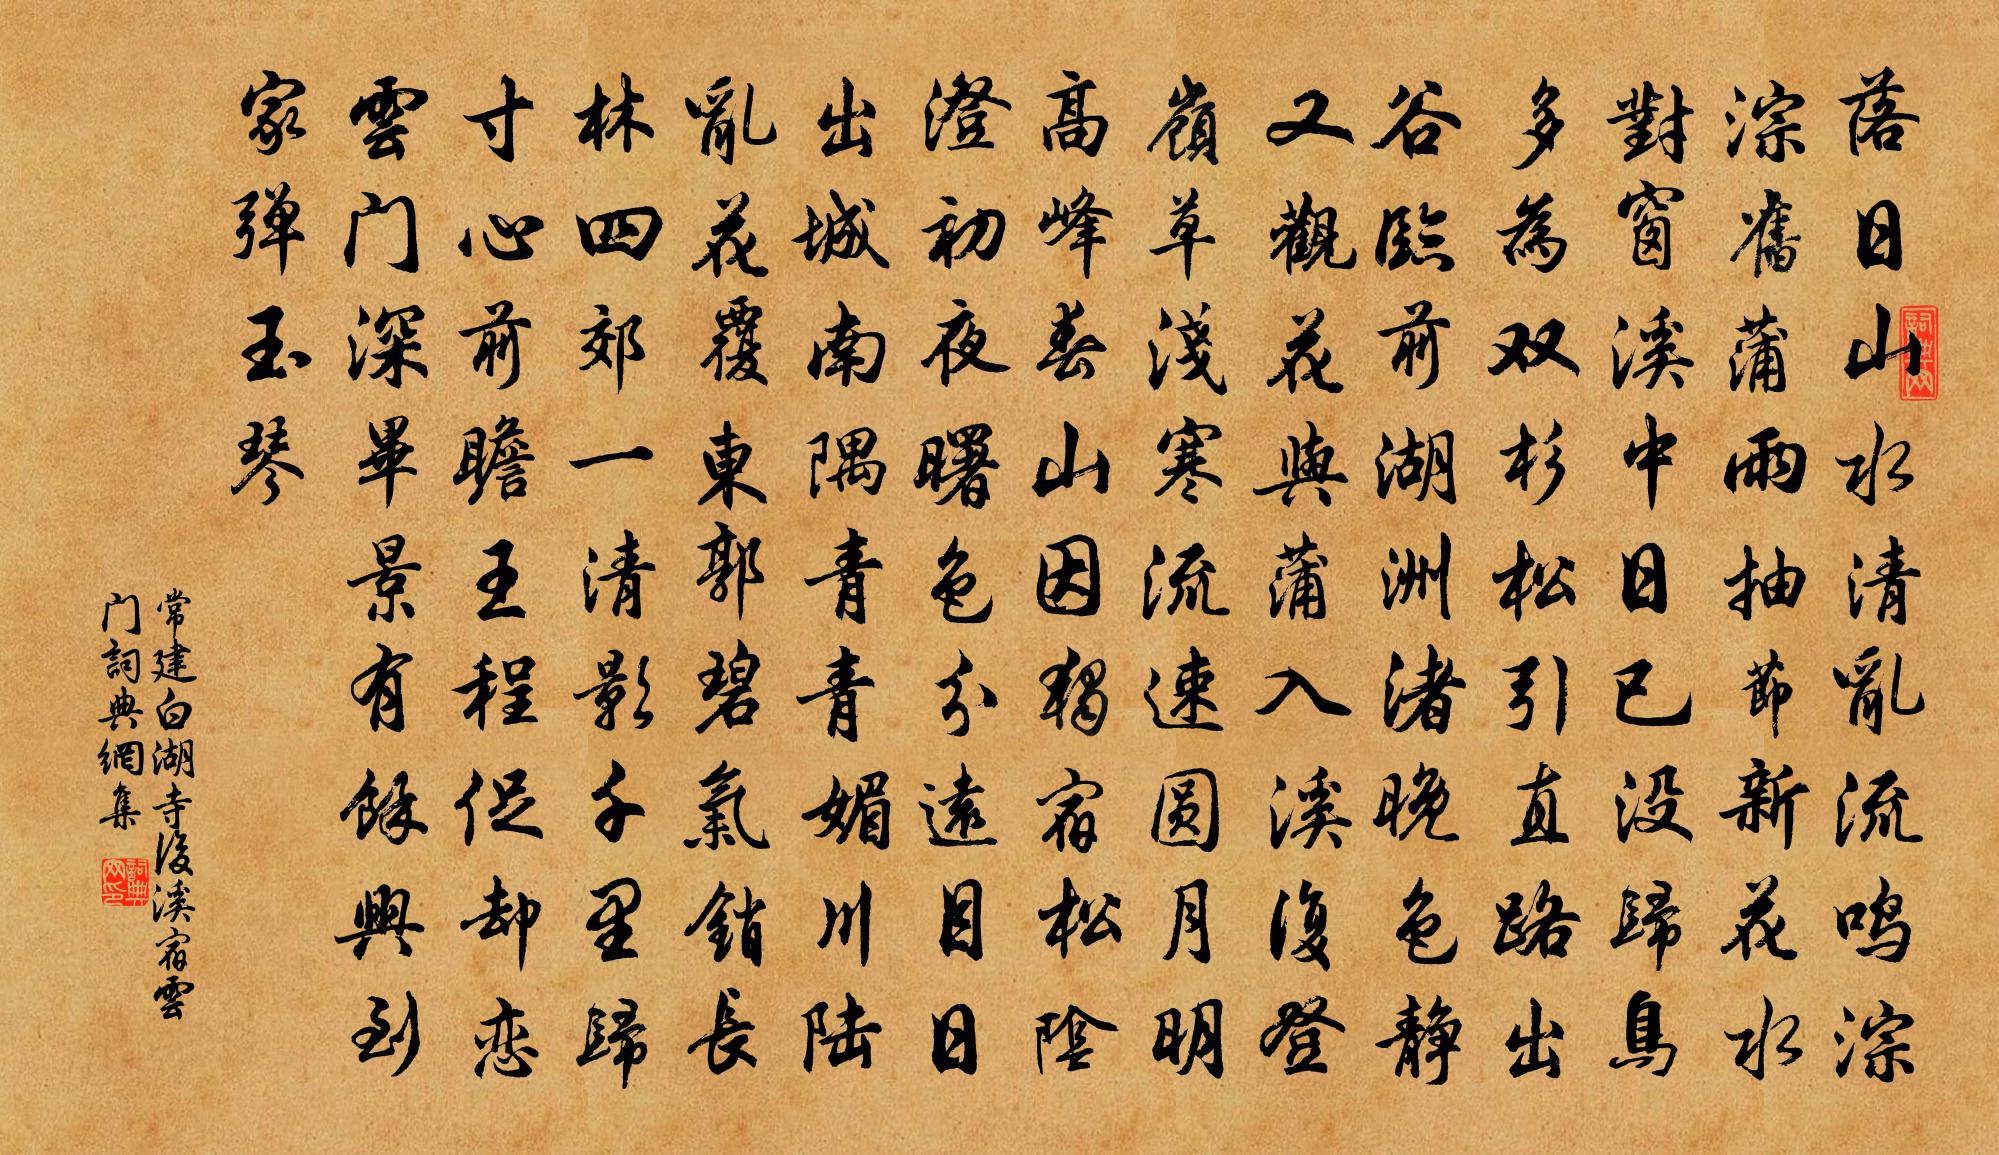 落日山水清亂流鳴淙
淙舊蒲雨抽節新花水
對窗溪中日已没歸鳥
多為双杉松引直路出
谷臨前湖洲渚晚色静
又觀花與蒲入溪復登
嶺草淺寒流速圆月明
高峰春山因獨宿松陰
澄初夜曙色分遠目日
出城南隅青青媚川陆
亂花覆東郭碧氣銷長
林四郊一清影千里歸
寸心前瞻王程促却恋
雲门深畢景有餘興到
家弹玉琴
常建白湖寺後溪宿雲
门詞典網集